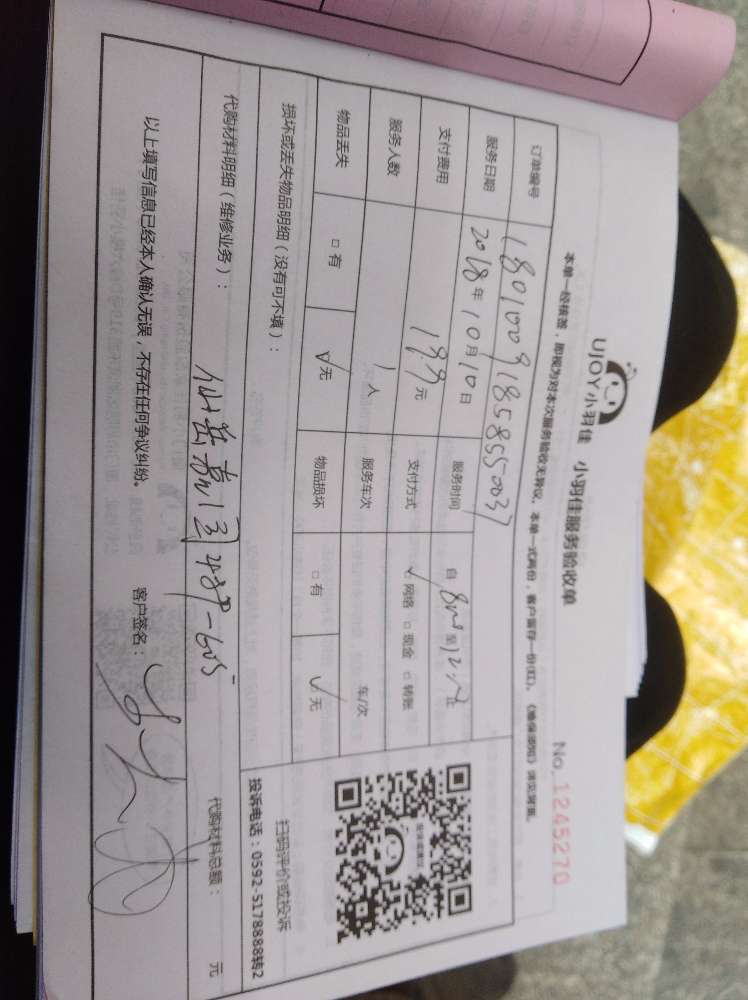 UJOY小羽佳 小羽佳服务验收单
No. 1245270
本单一经核签，即视为对本次服务验收无异议。本单一式两份，客户留存一份(红)。
订单编号 18010091858550037
服务日期 2018年10月10日 服务时间 自 8:00 至 12:00 止
支付费用 199元 支付方式 ☑网络 □现金 □转账
服务人数 1人 服务车次 车/次
物品丢失 □有 ☑无 物品损坏 □有 ☑无
扫码评价或投诉
投诉电话：0592-5178888转2
损坏或丢失物品明细（没有可不填）：
代购材料明细（维修业务）： 代购材料总额： 元
仙岳 487-605
以上填写信息已经本人确认无误，不存在任何争议纠纷。 客户签名：